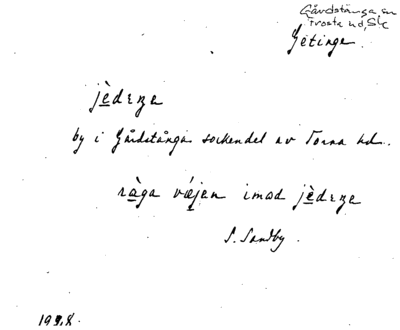 Gårdstånga sn
Frosta hd, Sk
Getinge.
jèdɛŋe
by i Gårdstånga sockendel av Torna hd.
ràga væjen imod jèdɛŋe
S. Sandby.
1938.